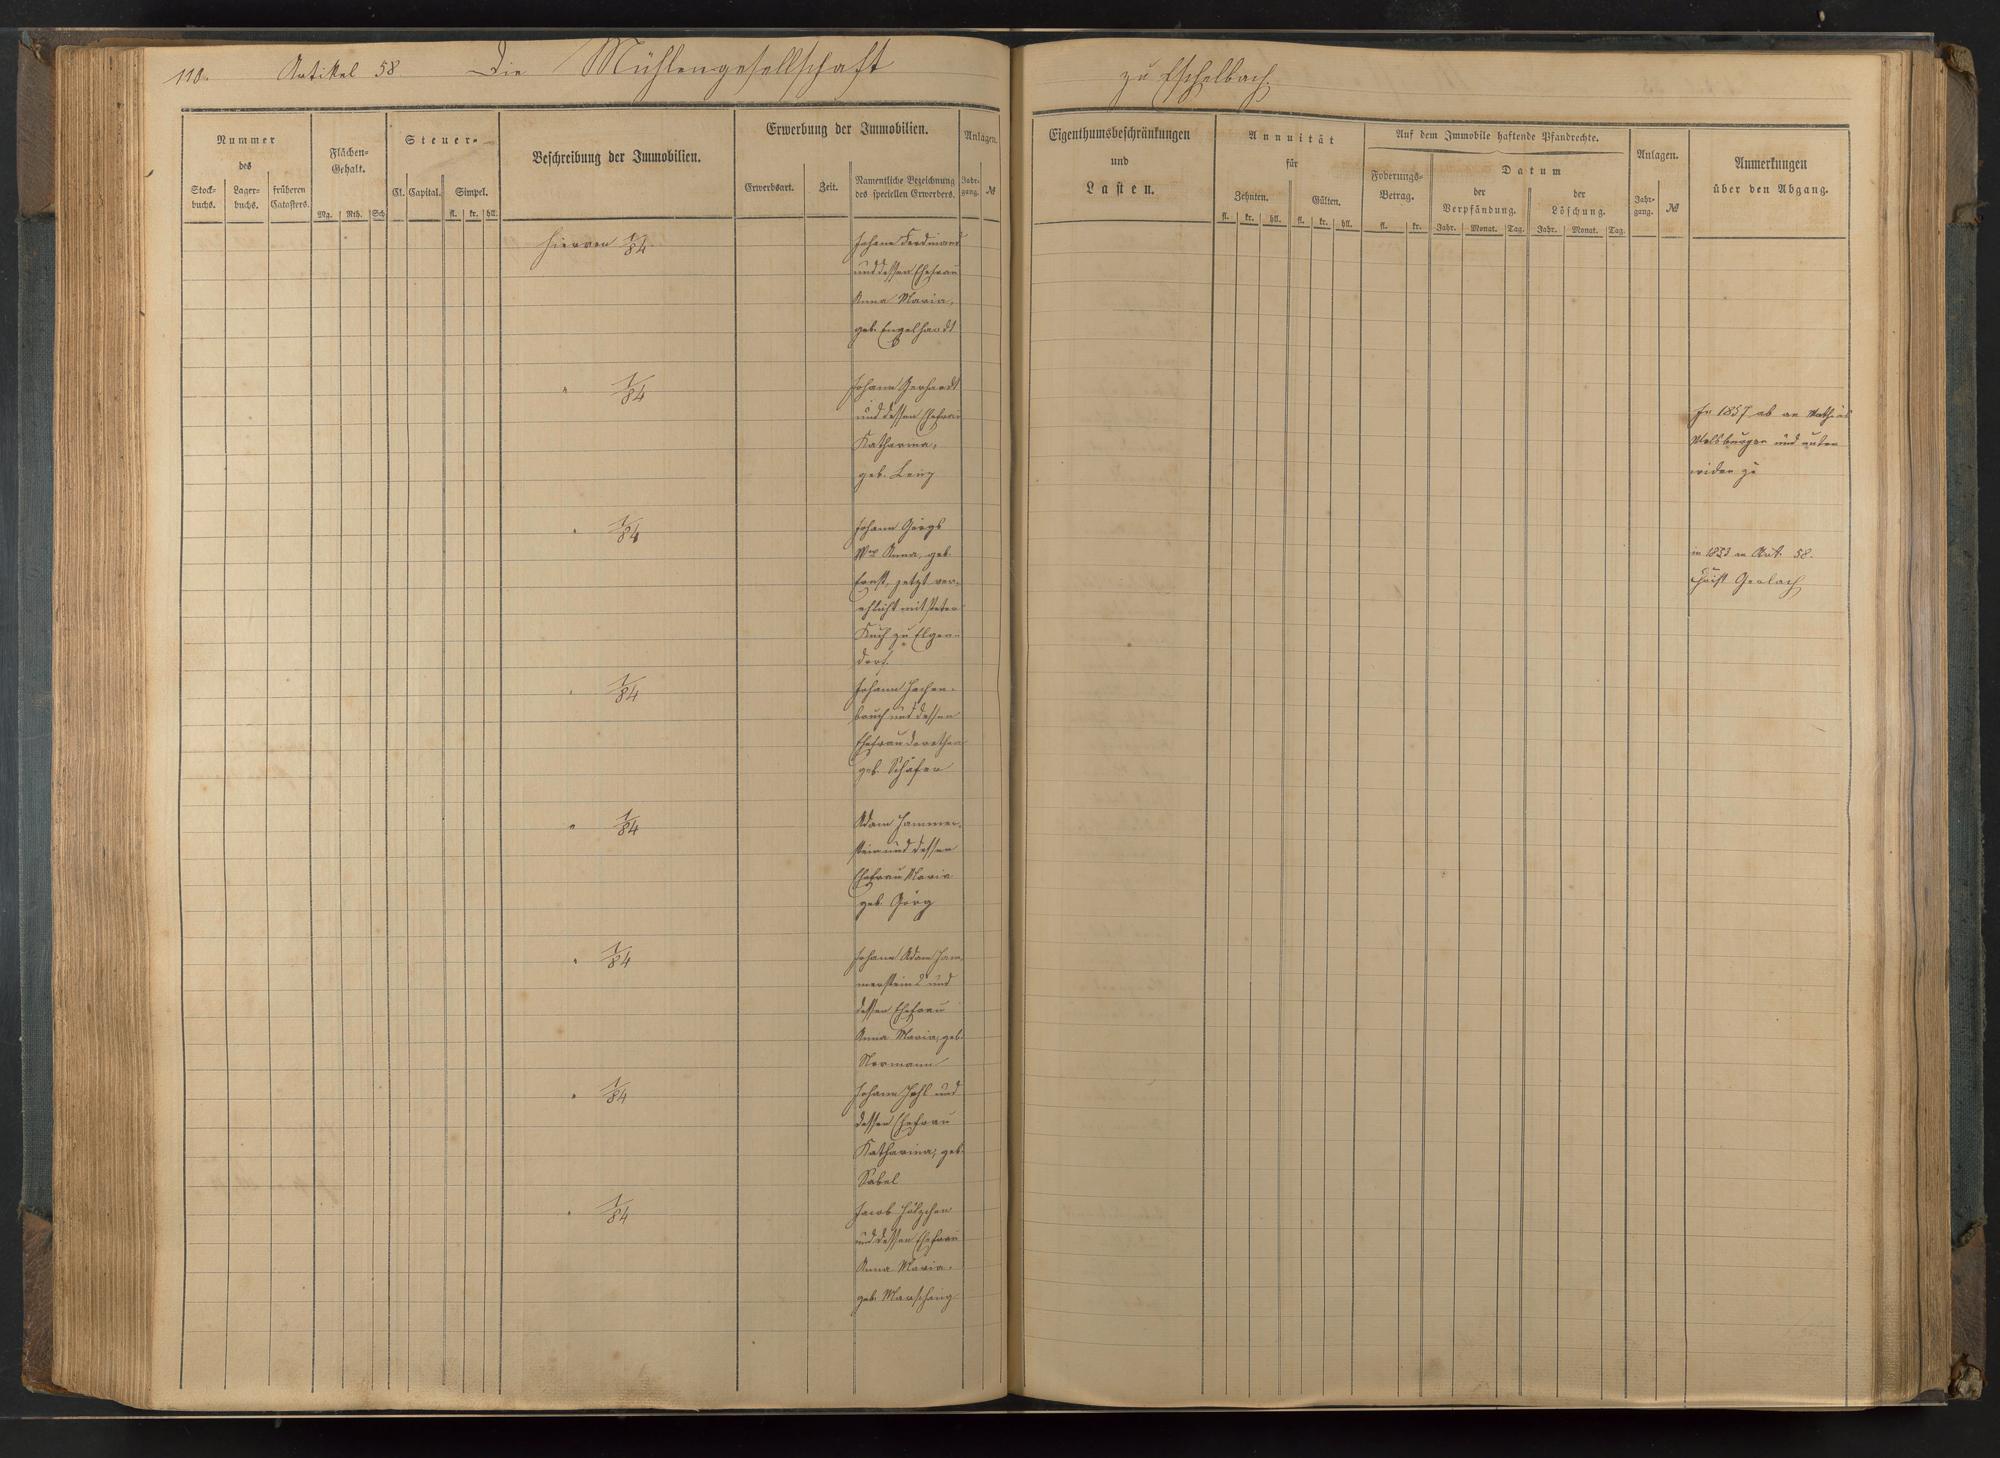 110. Artikel 58 Die Mühlengesellschaft
zu Eschelbach.
Nummer
des
Stock-
buchs.
Lager-
buchs.
früheren
Catasters.
Flächen-
Gehalt.
Mg. Rth. Sch.
Steuer-
Cl. Capital. Simpel.
fl. kr. hll.
Beschreibung der Immobilien.
Erwerbung der Immobilien.
Erwerbsart. Zeit.
Namentliche Bezeichnung
des speciellen Erwerbers.
Anlagen.
Jahr-
gang. №
Eigenthumsbeschränkungen
und
Lasten.
Annuität
für
Zehnten. Gülten.
fl. kr. hll. fl. kr. hll.
Auf dem Immobile haftende Pfandrechte.
Foderungs-
Betrag.
fl. kr.
Datum
der
Verpfändung.
der
Löschung.
Jahr. Monat. Tag. Jahr. Monat. Tag.
Anlagen.
Jahr-
gang. №
Anmerkungen
über den Abgang.
hiervon 1/84
Johann Ferdinand
und dessen Ehefrau
Anna Maria,
geb. Engelhardt
" 1/84
Johann Gerhardt
und dessen Ehefrau
Katharina,
geb. Lenz
In 1857 ab an Mathias
und unten
wider zu
" 1/84
Johann Görgs
Wwe Anna, geb.
Ernst, jetzt ver-
ehlicht mit Peter
Kuch zu Elgen-
dorf.
in 1853 an Art. 58.
Christ Gerlach
" 1/84
Johann Hachen-
bruch und dessen
Ehefrau Dorothea
geb. Schäfer
" 1/84
Adam Hammer-
stein und dessen
Ehefrau Maria
geb. Görg
" 1/84
Johann Adam Ham-
merstein 2 und
dessen Ehefrau
Anna Maria, geb.
Normann
" 1/84
Johann Hehl und
dessen Ehefrau
Katharina, geb.
Sabel
" 1/84
Jacob Hölzchen
und dessen Ehefrau
Anna Maria,
geb. Marschang